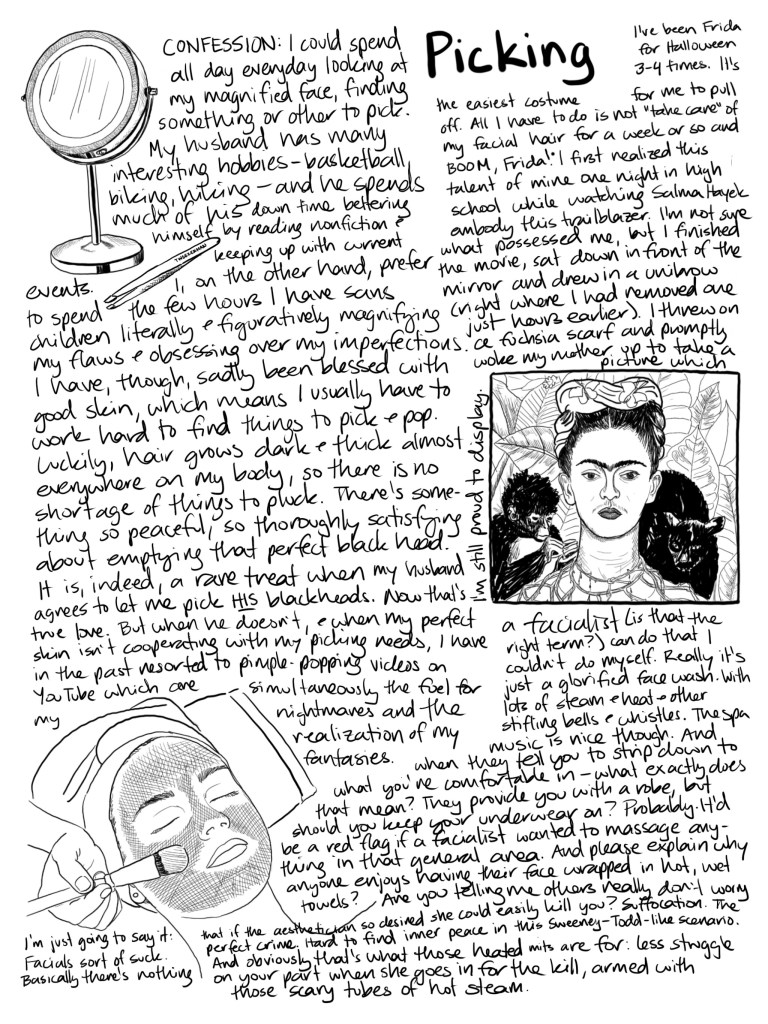 Picking
CONFESSION: I could spend
all day everyday looking at
my magnified face, finding
something or other to pick.
My husband has many
interesting hobbies – basketball,
biking, hiking – and he spends
much of his down time bettering
himself by reading nonfiction &
keeping up with current
events.
TWEEZERMAN
I, on the other hand, prefer
to spend the few hours I have sans
children literally & figuratively magnifying
my flaws & obsessing over my imperfections.
I have, though, sadly been blessed with
good skin, which means I usually have to
work hard to find things to pick & pop.
Luckily, hair grows dark & thick almost
everywhere on my body, so there is no
shortage of things to pluck. There's some-
thing so peaceful, so thoroughly satisfying
about emptying that perfect black head.
It is, indeed, a rare treat when my husband
agrees to let me pick HIS blackheads. Now that's
true love. But when he doesn't, & when my perfect
skin isn't cooperating with my picking needs, I have
in the past resorted to pimple-popping videos on
YouTube which are simultaneously the fuel for
my nightmares and the
realization of my
fantasies.
I've been Frida
for Halloween
3-4 times. It's
the easiest costume for me to pull
off. All I have to do is not "take care" of
my facial hair for a week or so and
BOOM, Frida! I first realized this
talent of mine one night in high
school while watching Salma Hayek
embody this trailblazer. I'm not sure
what possessed me, but I finished
the movie, sat down in front of the
mirror and drew in a unibrow
(right where I had removed one
just hours earlier). I threw on
a fuchsia scarf and promptly
woke my mother up to take a
picture which
I'm still proud to display.
I'm just going to say it:
Facials sort of suck.
Basically there's nothing
a facialist (is that the
right term?) can do that I
couldn't do myself. Really it's
just a glorified face wash. With
lots of steam & heat & other
stifling bells & whistles. The spa
music is nice though. And
when they tell you to strip down to
what you're comfortable in – what exactly does
that mean? They provide you with a robe, but
should you keep your underwear on? Probably. It'd
be a red flag if a facialist wanted to massage any-
thing in that general area. And please explain why
anyone enjoys having their face wrapped in hot, wet
towels? Are you telling me others really don't worry
that if the aesthetician so desired she could easily kill you? Suffocation. The
perfect crime. Hard to find inner peace in this Sweeney-Todd-like scenario.
And obviously that's what those heated mits are for: less struggle
on your part when she goes in for the kill, armed with
those scary tubes of hot steam.